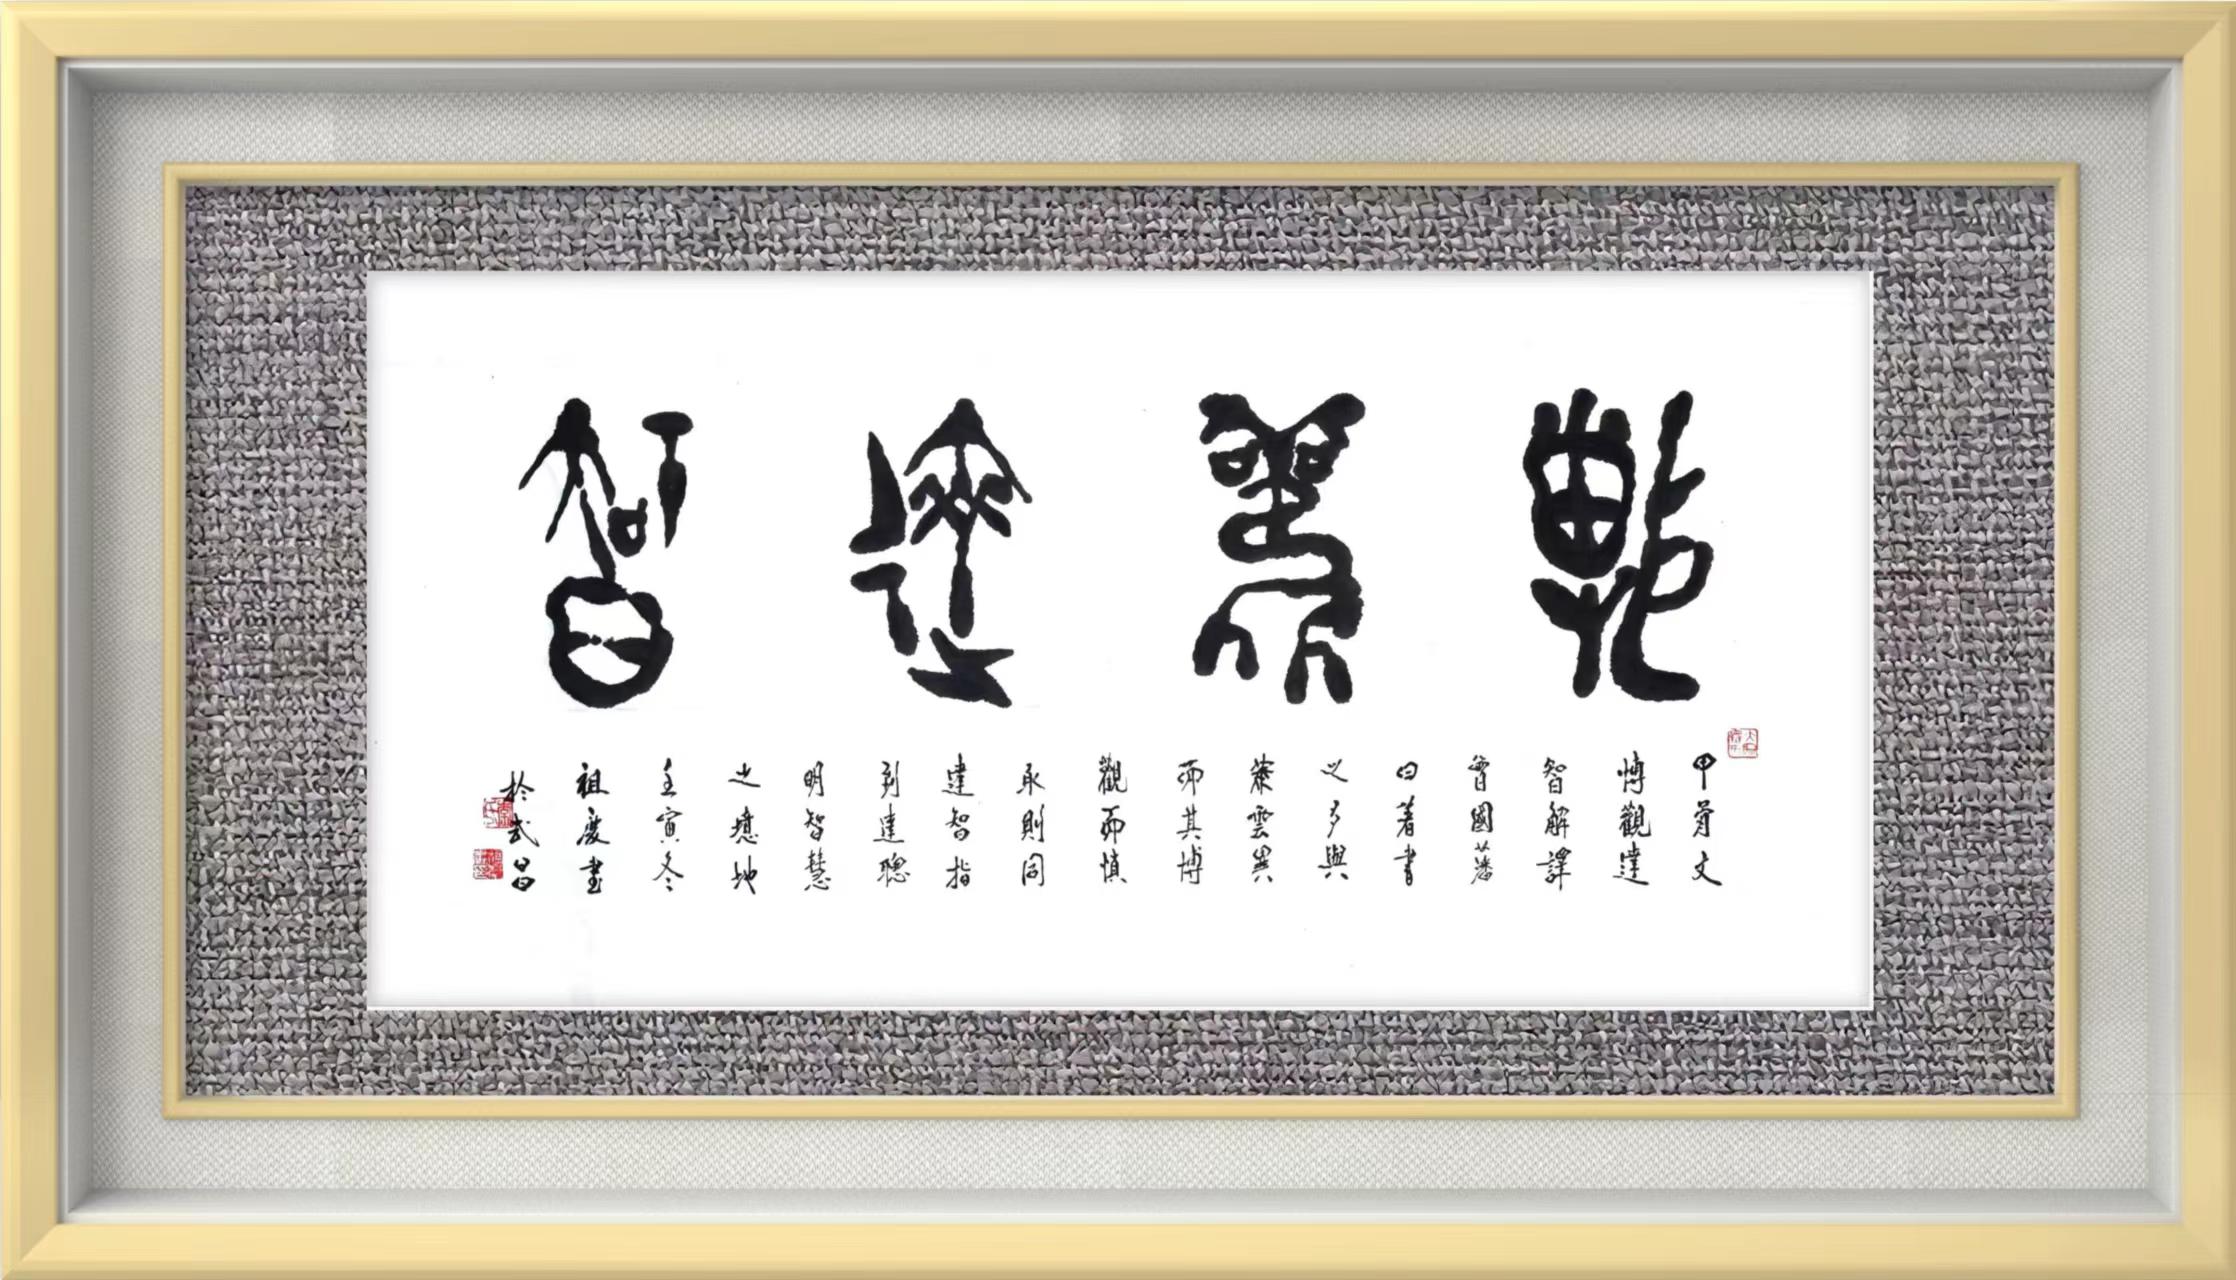 博觀達智
甲骨文
博觀達
智解譯
曾國藩
曰著書
之多與
養雲異
而其博
觀而慎
取則同
達智指
到達聰
明智慧
之境地
壬寅冬
祖慶書
於武昌